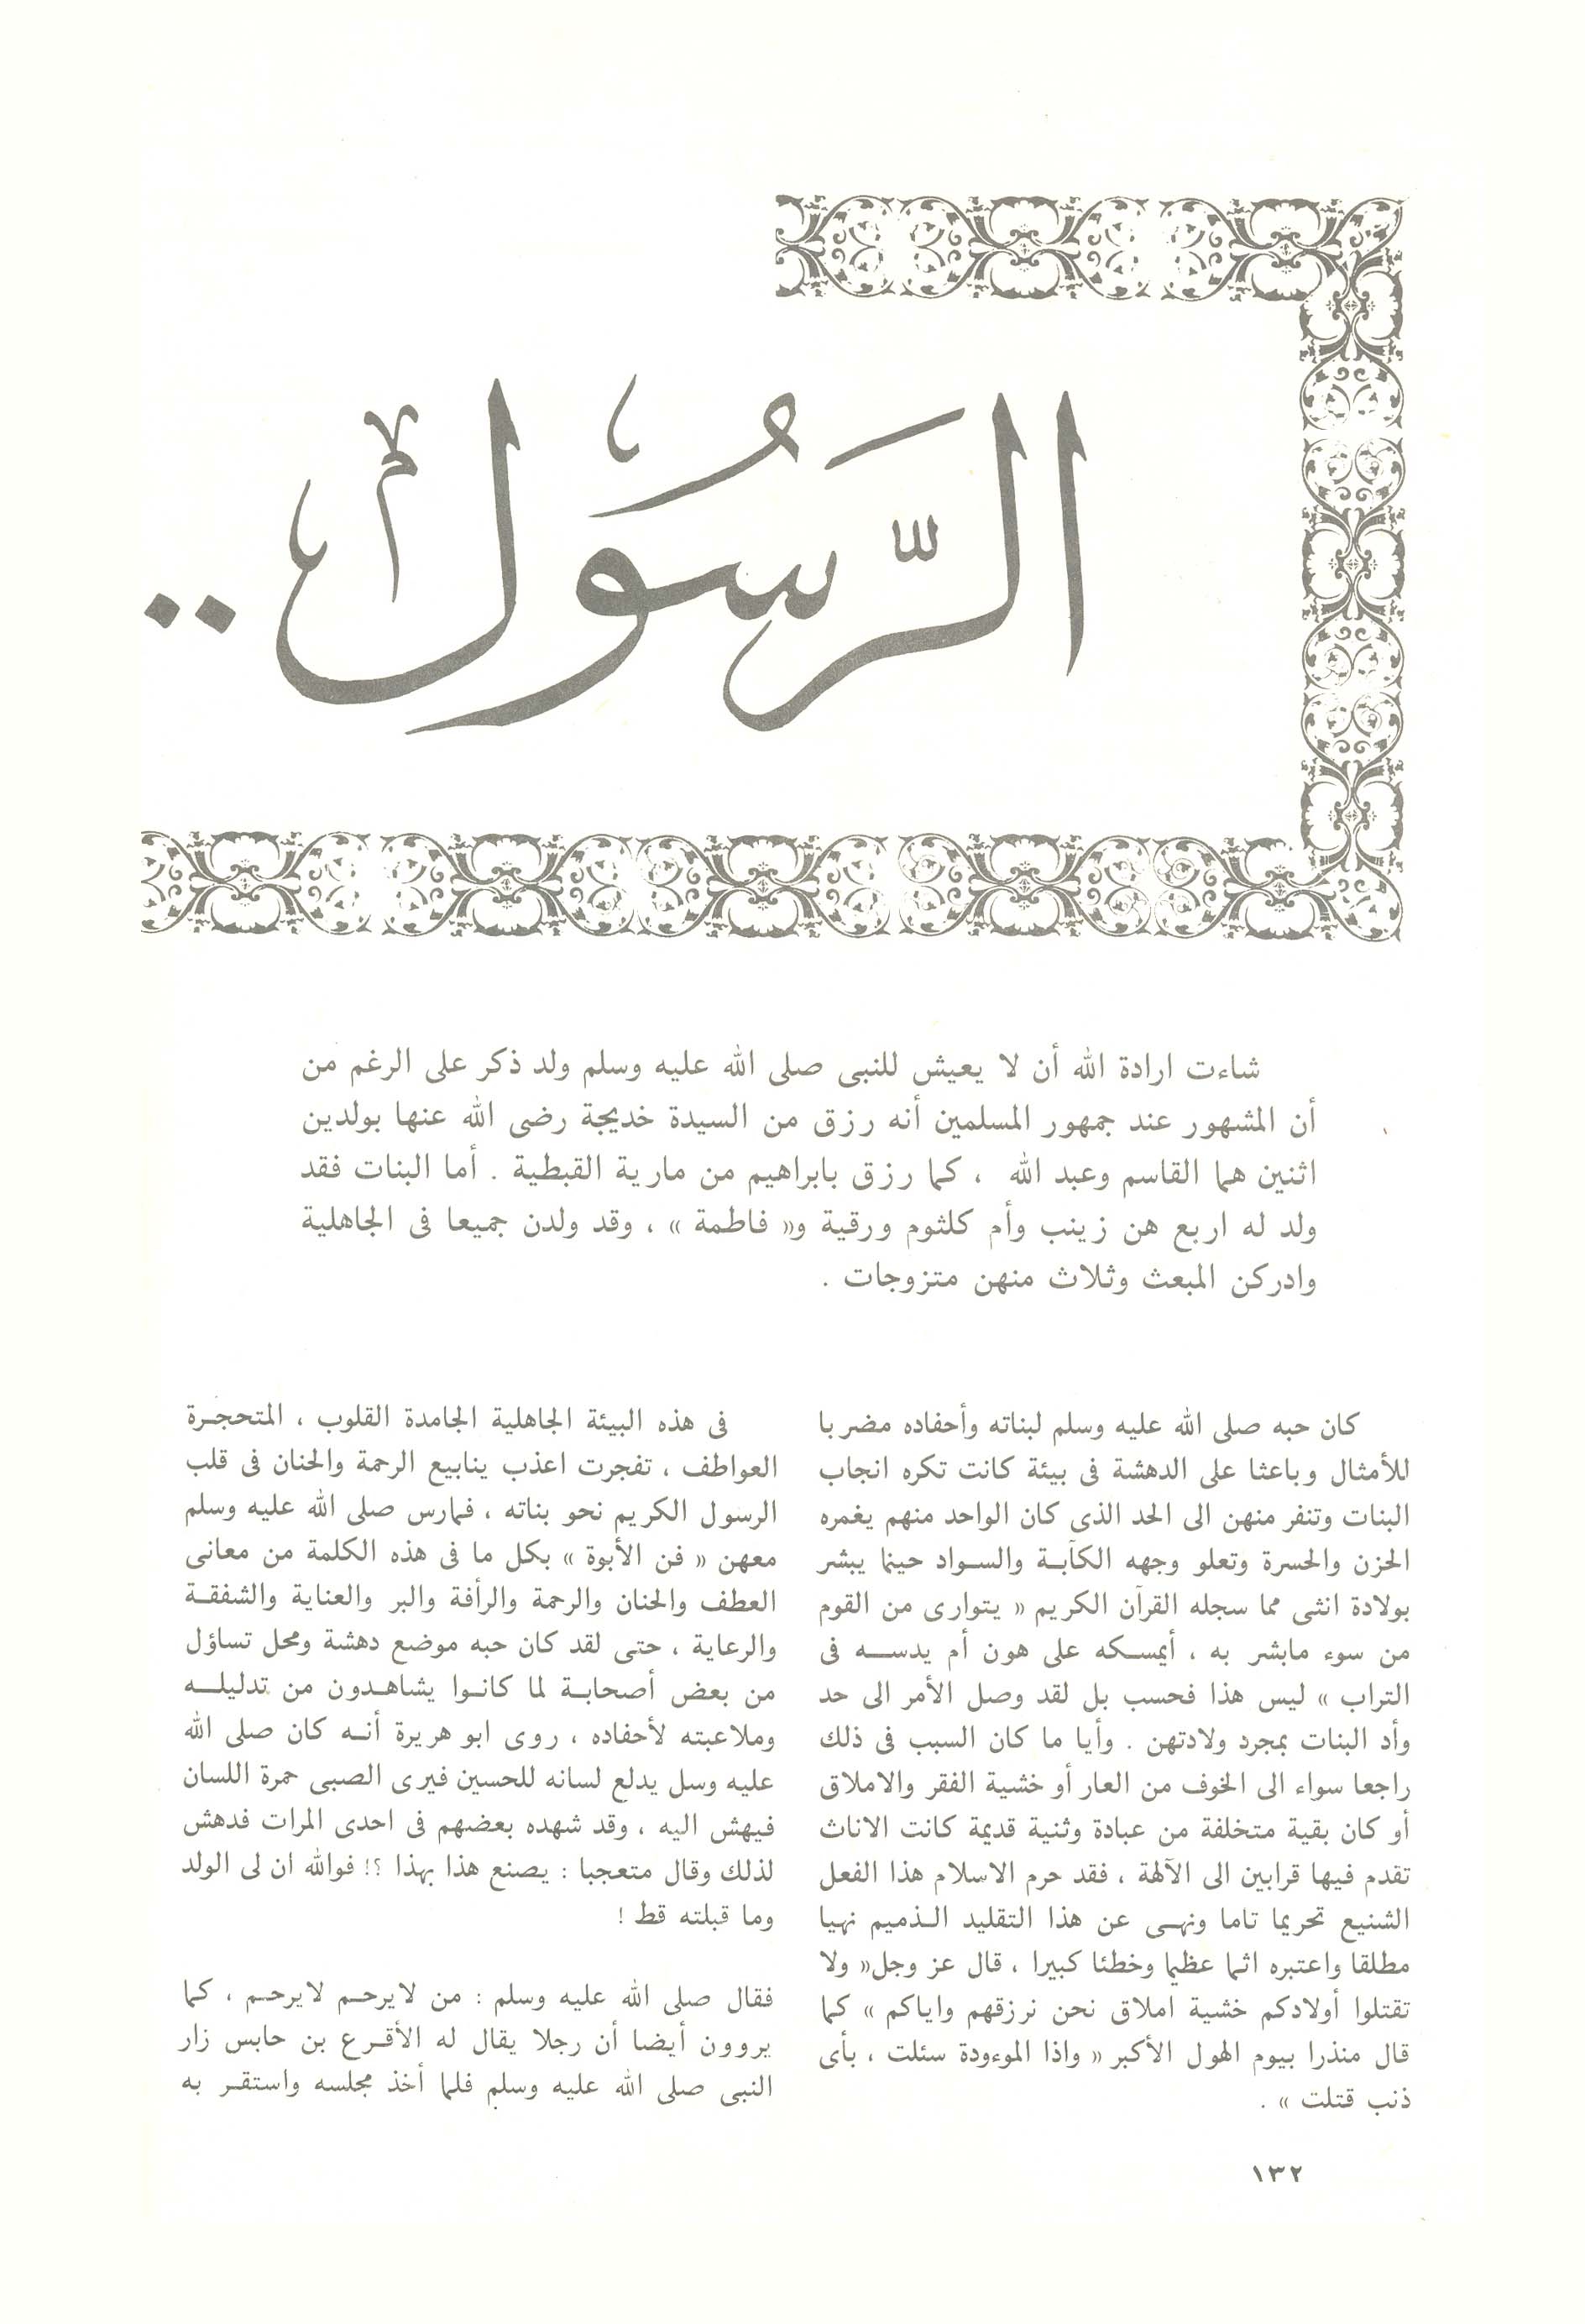 الرَّسُول ..
شاءت ارادة الله أن لا يعيش للنبى صلى الله عليه وسلم ولد ذكر على الرغم من
أن المشهور عند جمهور المسلمين أنه رزق من السيدة خديجة رضى الله عنها بولدين
اثنين هما القاسم وعبد الله ، كما رزق بابراهيم من مارية القبطية . أما البنات فقد
ولد له اربع هن زينب وأم كلثوم ورقية و« فاطمة » ، وقد ولدن جميعا فى الجاهلية
وادركن المبعث وثلاث منهن متزوجات .
كان حبه صلى الله عليه وسلم لبناته وأحفاده مضربا
للأمثال وباعثا على الدهشة فى بيئة كانت تكره انجاب
البنات وتنفر منهن الى الحد الذى كان الواحد منهم يغمره
الحزن والحسرة وتعلو وجهه الكآبة والسواد حينما يبشر
بولادة انثى مما سجله القرآن الكريم « يتوارى من القوم
من سوء مابشر به ، أيمسكه على هون أم يدسه فى
التراب » ليس هذا فحسب بل لقد وصل الأمر الى حد
وأد البنات بمجرد ولادتهن . وأيا ما كان السبب فى ذلك
راجعا سواء الى الخوف من العار أو خشية الفقر والاملاق
أو كان بقية متخلفة من عبادة وثنية قديمة كانت الاناث
تقدم فيها قرابين الى الآلهة ، فقد حرم الاسلام هذا الفعل
الشنيع تحريما تاما ونهى عن هذا التقليد الذميم نهيا
مطلقا واعتبره اثما عظيما وخطئا كبيرا ، قال عز وجل« ولا
تقتلوا أولادكم خشية املاق نحن نرزقهم واياكم » كما
قال منذرا بيوم الهول الأكبر « واذا الموءودة سئلت ، بأى
ذنب قتلت » .
فى هذه البيئة الجاهلية الجامدة القلوب ، المتحجرة
العواطف ، تفجرت اعذب ينابيع الرحمة والحنان فى قلب
الرسول الكريم نحو بناته ، فمارس صلى الله عليه وسلم
معهن « فن الأبوة » بكل ما فى هذه الكلمة من معانى
العطف والحنان والرحمة والرأفة والبر والعناية والشفقة
والرعاية ، حتى لقد كان حبه موضع دهشة ومحل تساؤل
من بعض أصحابة لما كانوا يشاهدون من تدليله
وملاعبته لأحفاده ، روى ابو هريرة أنه كان صلى الله
عليه وسل يدلع لسانه للحسين فيرى الصبى حمرة اللسان
فيهش اليه ، وقد شهده بعضهم فى احدى المرات فدهش
لذلك وقال متعجبا : يصنع هذا بهذا ؟! فوالله ان لى الولد
وما قبلته قط !
فقال صلى الله عليه وسلم : من لايرحم لايرحم ، كما
يروون أيضا أن رجلا يقال له الأقرع بن حابس زار
النبى صلى الله عليه وسلم فلما أخذ مجلسه واستقر به
١٣٢